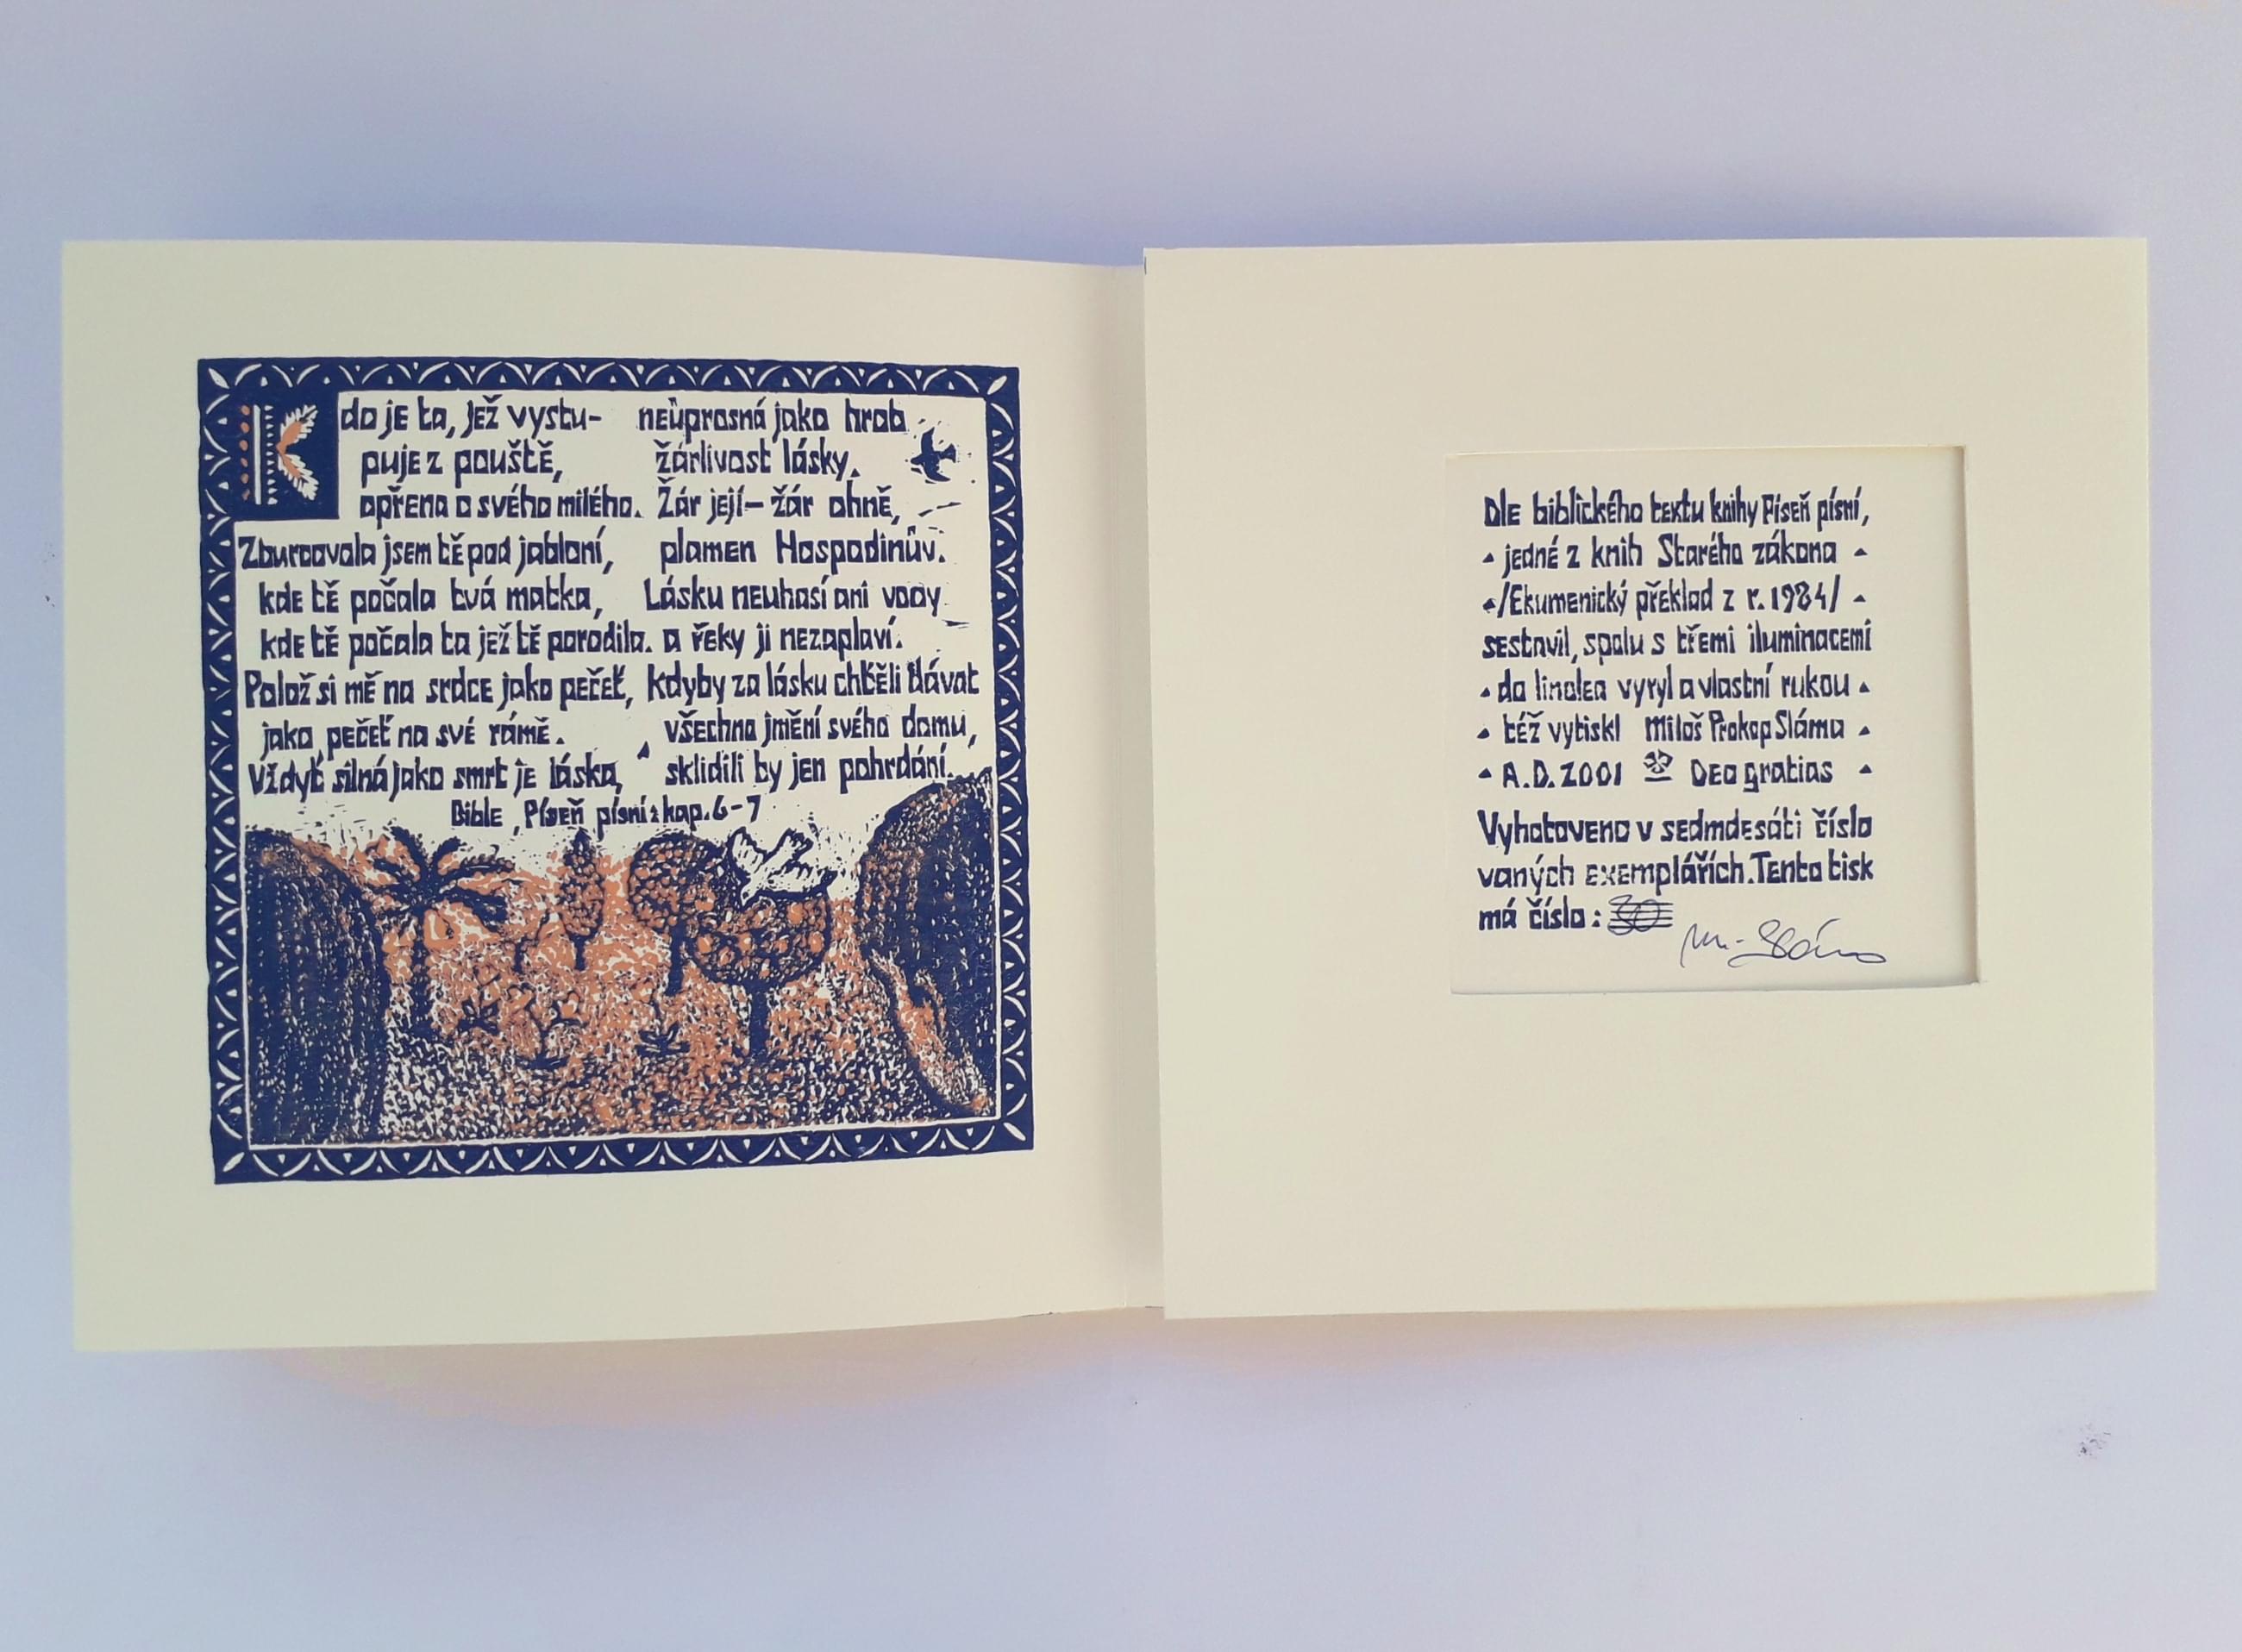 Kdo je ta, jež vystu-
puje z pouště,
opřena o svého milého.
Zburcovala jsem tě pod jabloní,
kde tě počala tvá matka,
kde tě počala ta jež tě porodila.
Polož si mě na srdce jako pečeť,
jako pečeť na své rámě.
Vždyť silná jako smrt je láska,
neúprosná jako hrob
žárlivost lásky.
Žár její – žár ohně,
plamen Hospodinův.
Lásku neuhasí ani vody
a řeky ji nezaplaví.
Kdyby za lásku chtěli dávat
všechno jmění svého domu,
sklidili by jen pohrdání.
Bible, Píseň písní: kap. 6-7
Dle biblického textu knihy Píseň písní,
jedné z knih Starého zákona
/Ekumenický překlad z r. 1984/
sestavil, spolu s třemi iluminacemi
do linolea vyryl a vlastní rukou
též vytiskl Miloš Prokop Sláma
A.D. 2001 Deo gratias
Vyhotoveno v sedmdesáti číslo
vaných exemplářích. Tento tisk
má číslo: 30